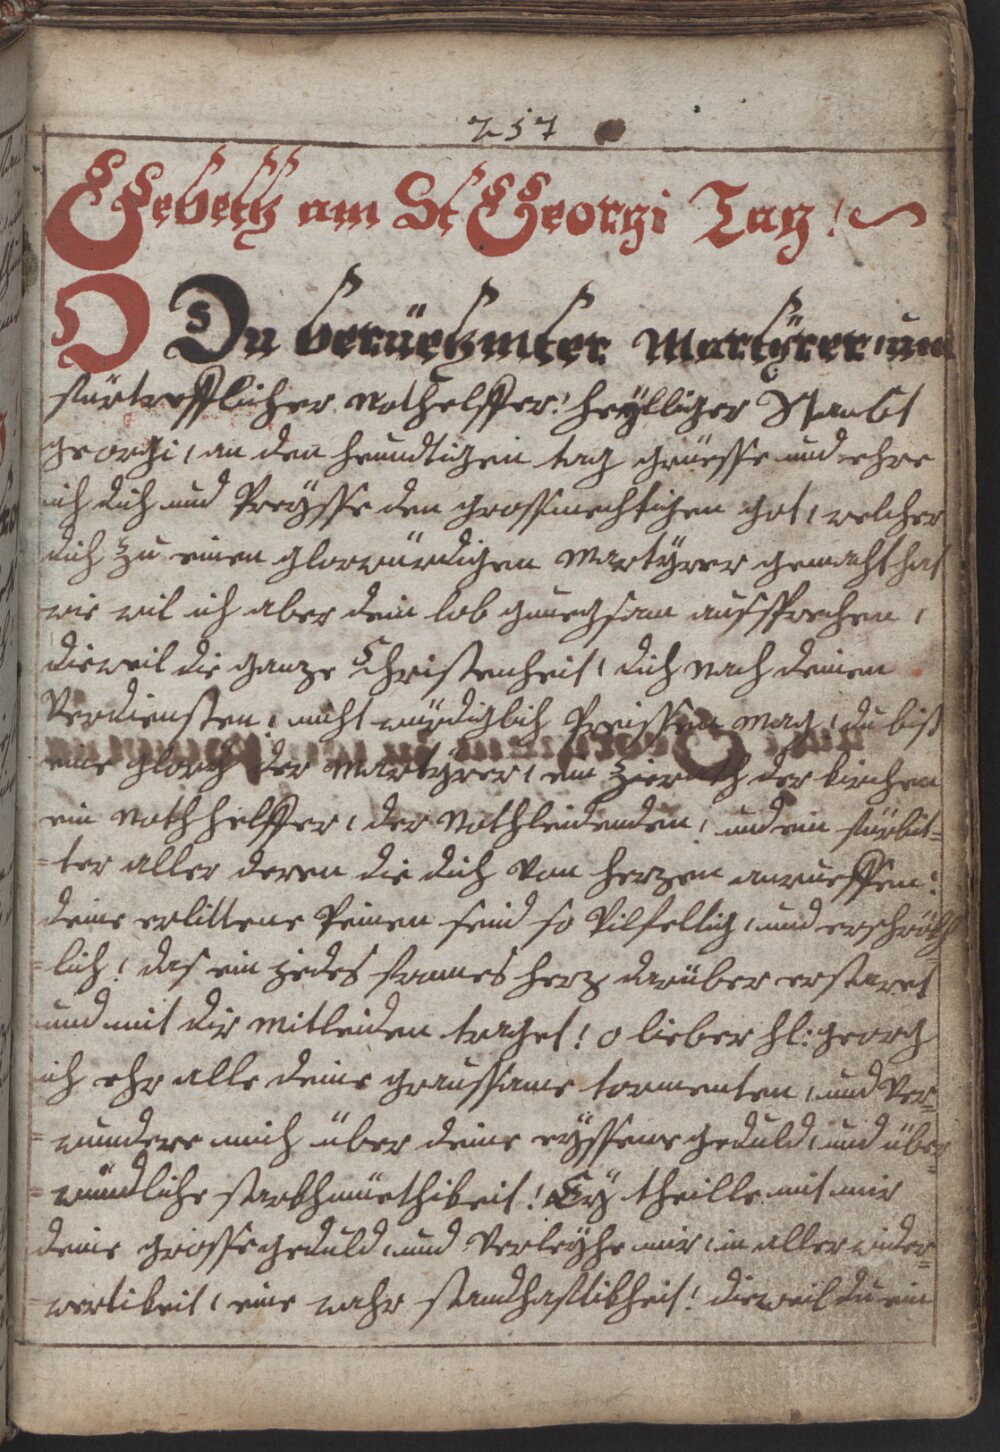 257
Gebett am St Georgi Tag!
O Du berüehmter Martÿrer, und
fürtrefflicher Nothelffer! heÿlliger Sanct
georgi, an den heundtigen tag grüesse und ehre
ich dich und Preÿsse den grossmechtigen got, welcher
dich zu einen glorwürdigen Martÿrer gemacht hat
wie wil ich aber dein lob gnuegsam aussprechen,
dieweil die ganze Christenheit, dich nach deinen
Verdiensten, nicht würdiglich Preissen mag, du bist
eine glory der Martÿrer, ein zierath der kirchen
ein Nothhelffer, der Nothleidenden, und ein fürbit-
-ter aller deren die dich von herzen anrueffen:
deine erlittene Peinen seind so Vilfeltig, und erschröckh
-lich, das ein jedes fromes herz darüber erstaret
und mit dir Mitleiden traget! o lieber hl: georg
ich ehr alle deine graussame tormenten, und Ver-
-wundere mich über deine eÿssene geduld, und über
-windliche starckhmüethikeit! Eÿ theille mit mir
deine grosse geduld, und Verleÿhe mir, in aller wider-
wertikeit, eine wahr standhafftikheit! dieweil du ein